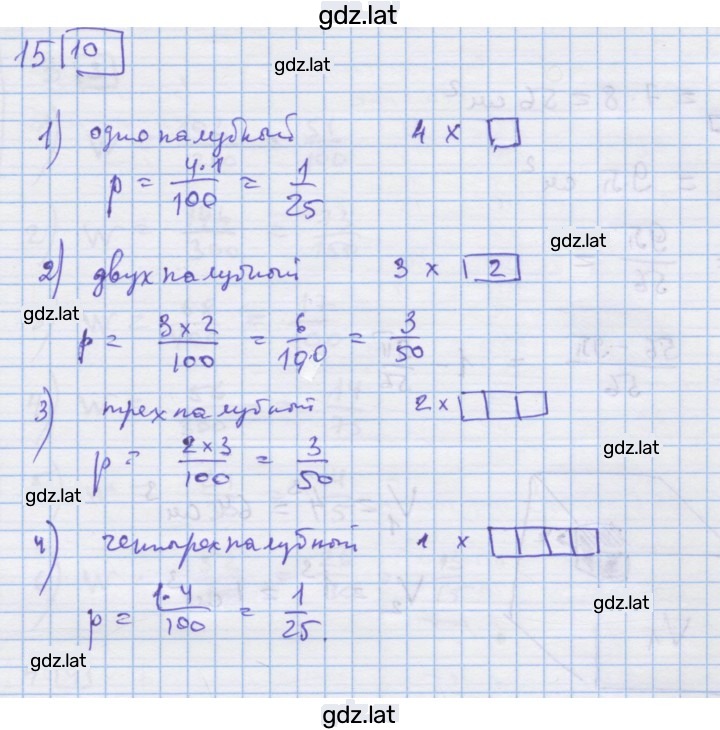 gdz.lat
15 10
gdz.lat
1) однопалубный 4 x
p = 4·1/100 = 1/25
gdz.lat
2) двухпалубный 3 x 2
gdz.lat
p = 3 x 2/100 = 6/100 = 3/50
3) трехпалубный 2 x
gdz.lat
p = 2 x 3/100 = 3/50
gdz.lat
4) четырехпалубный 1 x
gdz.lat
p = 1·4/100 = 1/25.
gdz.lat
gdz.lat